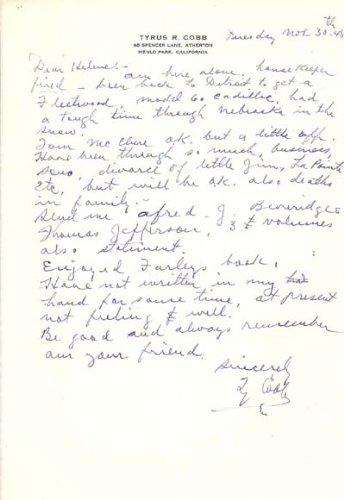 TYRUS R. COBB
48 SPENCER LANE, ATHERTON
MENLO PARK, CALIFORNIA
Tuesday Nov 30th 48
Dear Helene:-
am here alone, house keeper
fired – been back to Detroit to get a
Fleetwood, model 60 cadillac, had
a tough time through nebraska in the
snow.
I am here ok. but a little off.
Have been through so much, business,
sons, divorce of little Jim, La
Etc, but will be ok. also deaths
in family.-
Send me afred. J. Beveridge
Thomas Jefferson, 3 volumes
also statement.
Enjoyed Farleys book,
Have not written in my
hand for some time, at present
not feeling well.
Be good and always remember
am your friend.
Sincerely
Ty Cobb